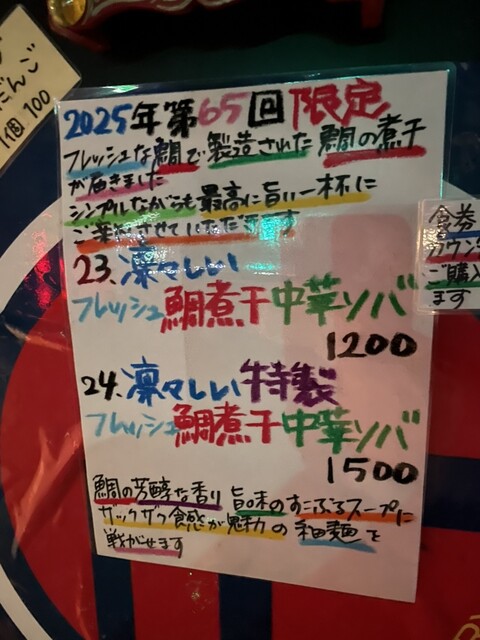 だんご
1個 100
2025年第65回限定
フレッシュな鯛で製造された鯛の煮干
が届きました
シンプルながらも最高に旨い一杯に
ご葉させていただきます
23.凛々しい
フレッシュ鯛煮干中華ソバ
1200
24.凛々しい特製
フレッシュ鯛煮干中華ソバ
1500
鯛の芳醇な香り 旨味のすこぶるスープに
ザックザク食感が魅力の 細麺を
戦がせます
食券
カウン
ご購入
ます